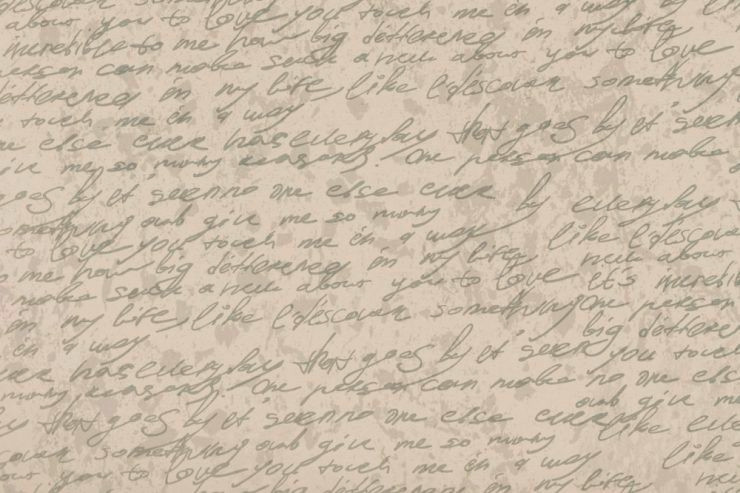 about you to love you touch me in a way by
incredible to me how big difference in my life
person can make such a new about you to love
difference in my life, like I discover something
touch me in a way
else ever has everyday that goes by it seem
give me so many reasons One person can make
goes by it seem no one else ever by everyday
something and give me so many
to love you touch me in a way like I discover
me how big difference in my life new about
make such a new about you to love It's incredible
in my life, like I discover something One person
in a way big difference
ever has everyday that goes by it seem you touch
many reasons One person can make no one else
that goes by it seem no one else ever and give me
discover something and give me so many like
about you to love you touch me in a way like
big difference in my life